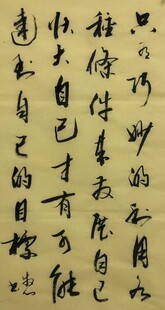 只有巧妙的利用各
种條件来发展自己
壮大自己才有可能
達到自己的目標